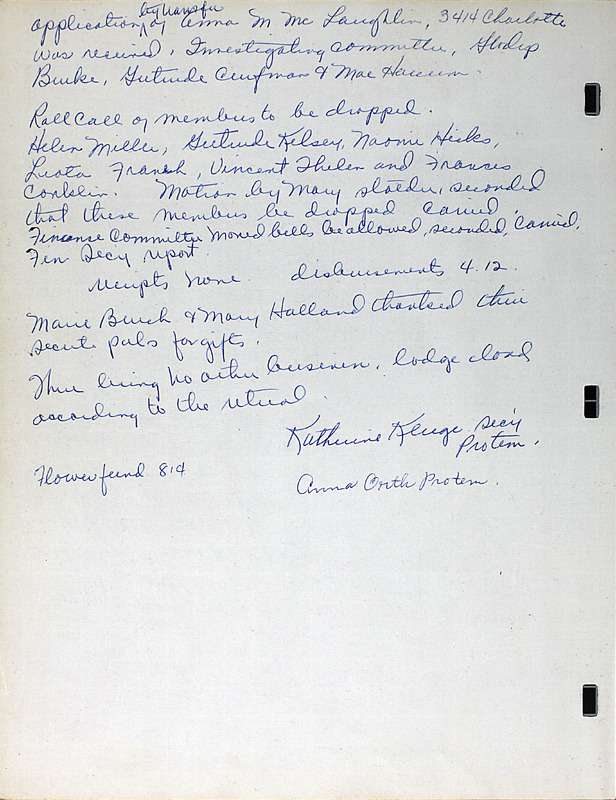 by transfer
application of Anna M Mc Laughlin, 3414 Charlotte
was received. Investigating committee, Gladys
Burke, Gertrude Cuffman & Mae
Roll Call of members to be dropped.
Helen Miller, Gertrude Kelsey, Naomi Hicks,
Leota French, Vincent Thelen and Frances
Conklin. Motion by Mary seconded
that these members be dropped carried.
Finance Committee moved bills be allowed, seconded, carried.
Fin Secy report
receipts none. disbursements 4.12.
Marie Burch & Mary Holland thanked their
secret pals for gifts.
There being no other business, lodge closed
according to the ritual.
Katherine Kluge secy
Protem.
Flower fund 814
Anna Orth Protem.